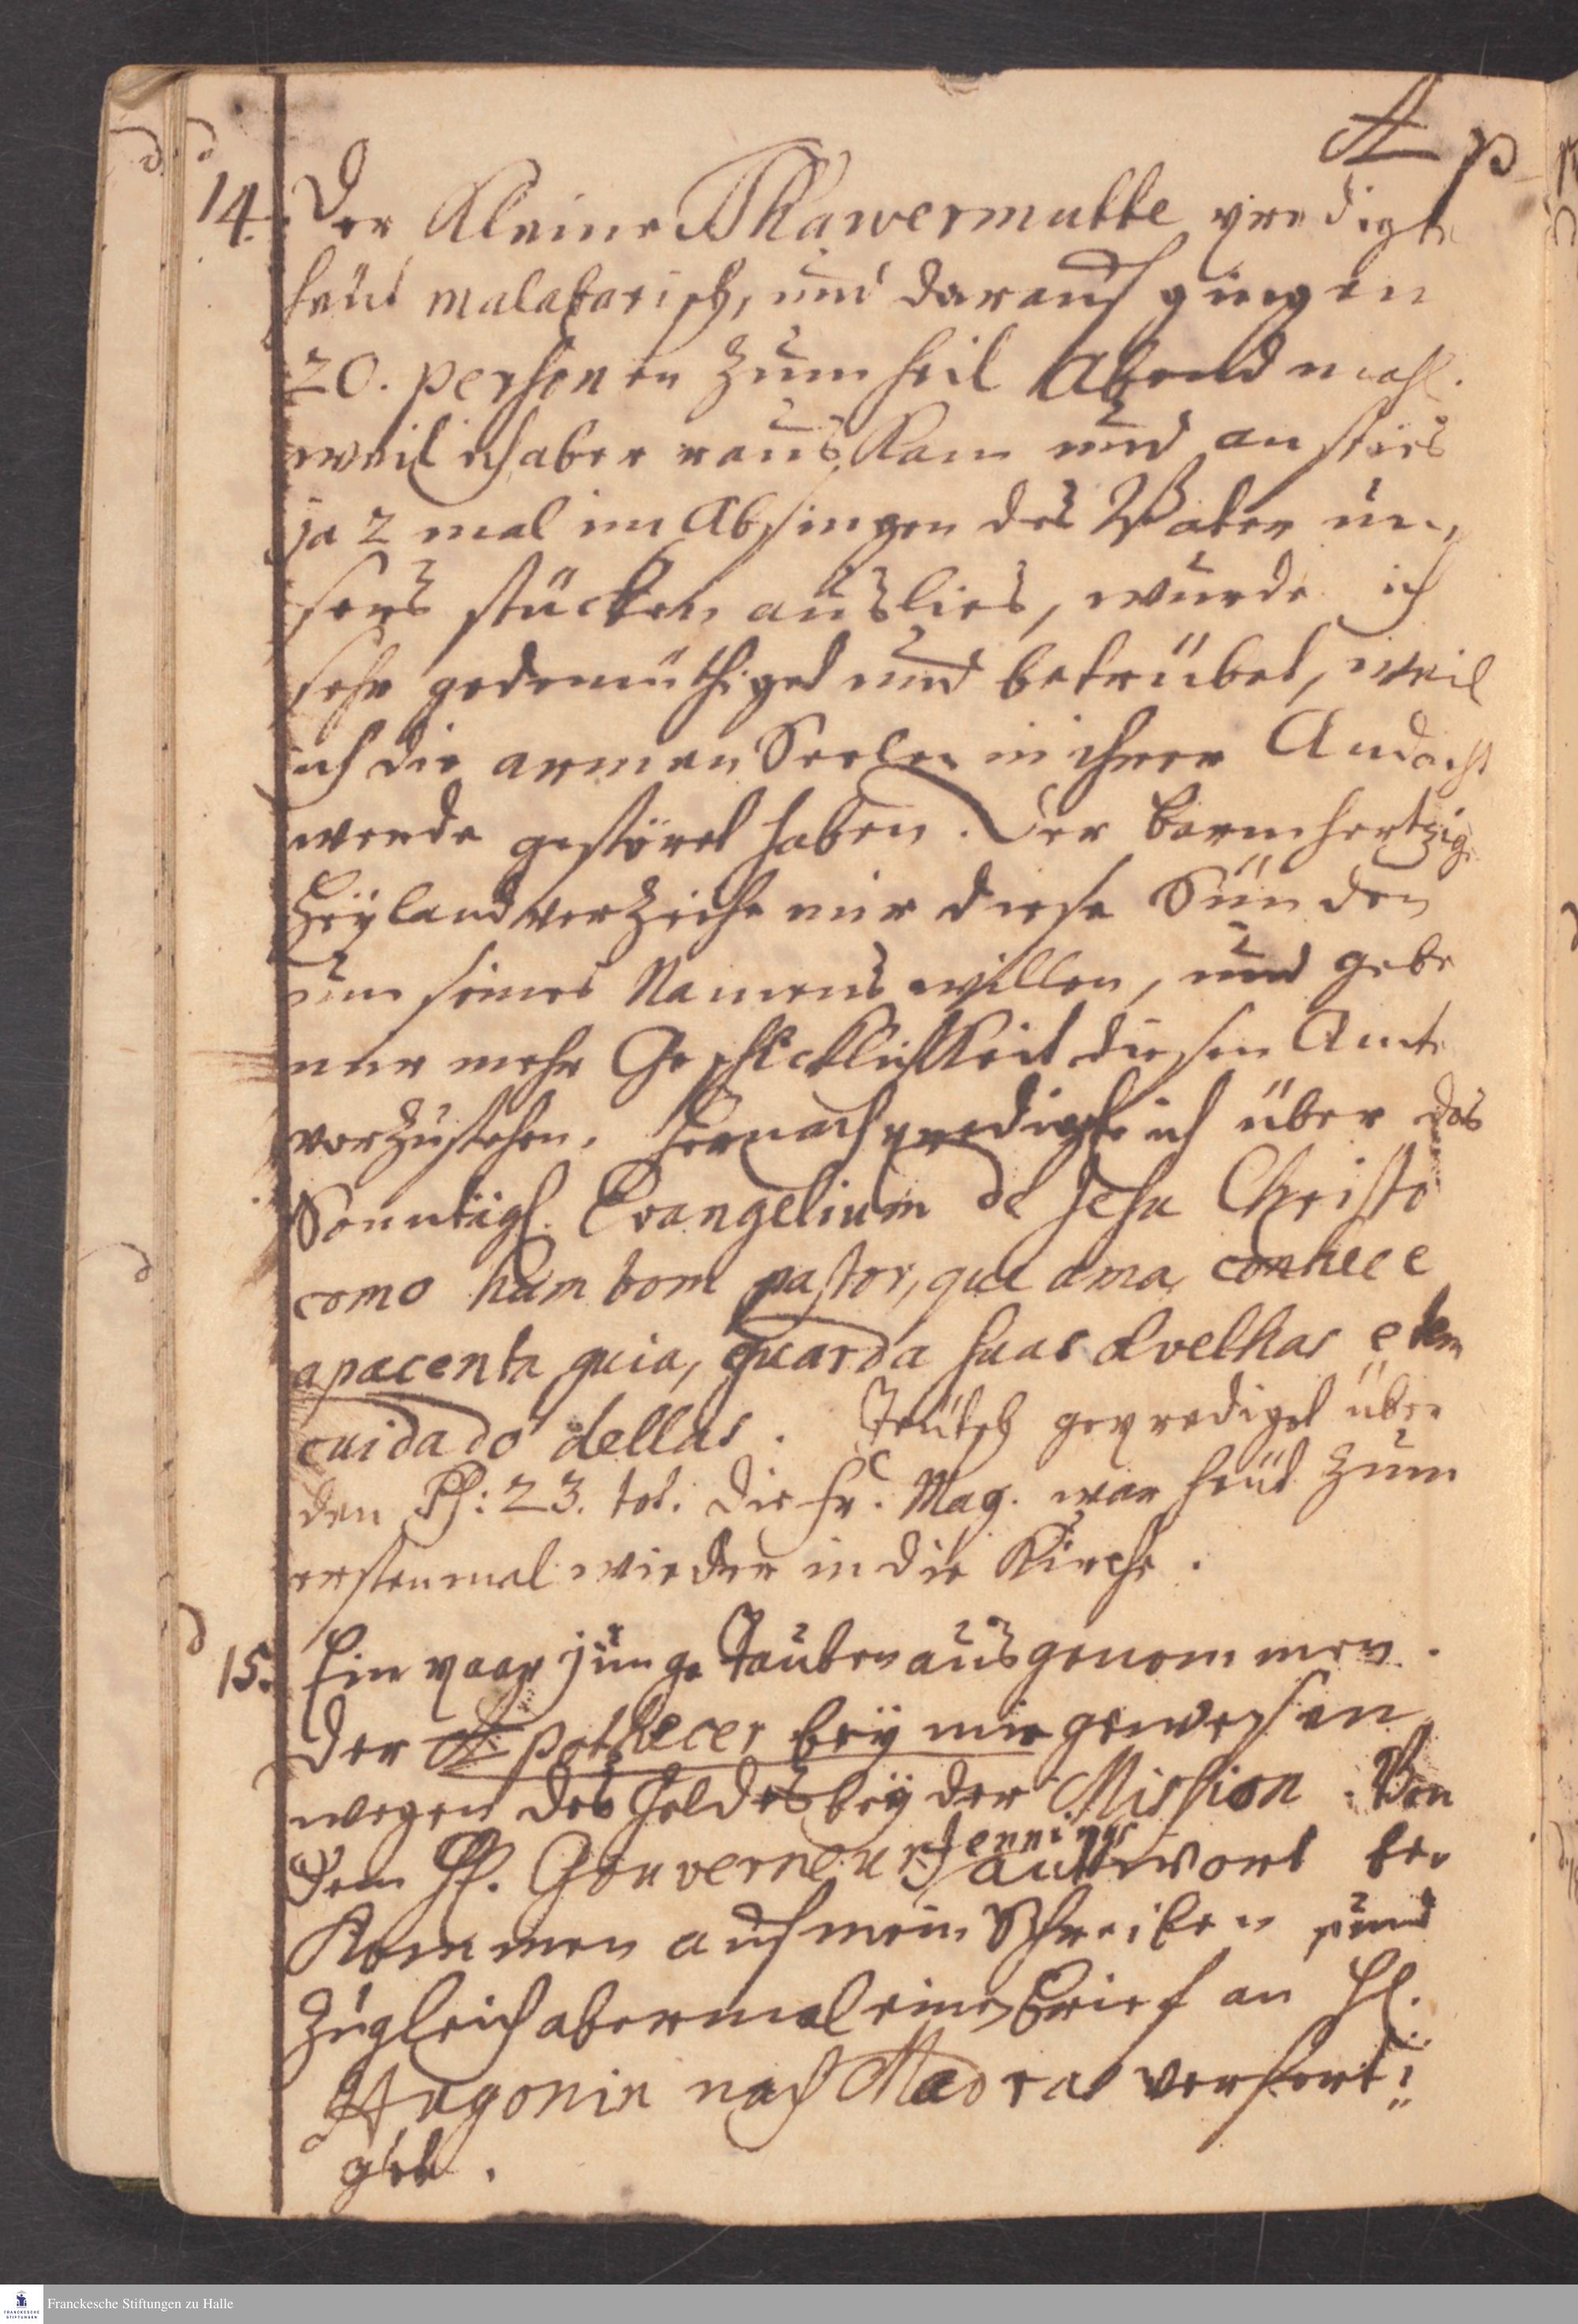 A p
14. Der Kleine Thawermutte predigte
heüt malabarisch, und darauf gingen
20. persohnen zum heil Abendmahl.
weil ich aber raus kam und ansties
ja 2 mal im Absingen des Vater un-
sers stücken auslies, wurde ich
sehr gedemüthiget und betrübet, weil
ich die armen Seelen in ihrer Andacht
werde gestöret haben. Der barmhertzige
Heyland verzeihe mir diese Sünden
um seines Namens willen, und gebe
mir mehr Geschicklichkeit diesen Amte
vorzustehen. Hernach predigte ich über das
Sonntägl. Evangelium de Jesu Christo
como hum bom pastor, que ama conhece
apacenta guia, guarda suas ovelhas e tem
cuidado dellas. Teütsch geprediget über
den Ps: 23. tot. Die Fr. Mag. war heüt zum
erstenmal wieder in die Kirche.
15. Ein paar junge Tauben ausgenommen.
Der Apothecer bey mir gewesen
wegen des Geldes bey der Mission. Von
dem H. Gouverneur Jennings antwort be-
kommen auf mein Schreiben und
zugleich abermal einen Brief an H.
Hugonin nach Madras verferti-
get.
Franckesche Stiftungen zu Halle